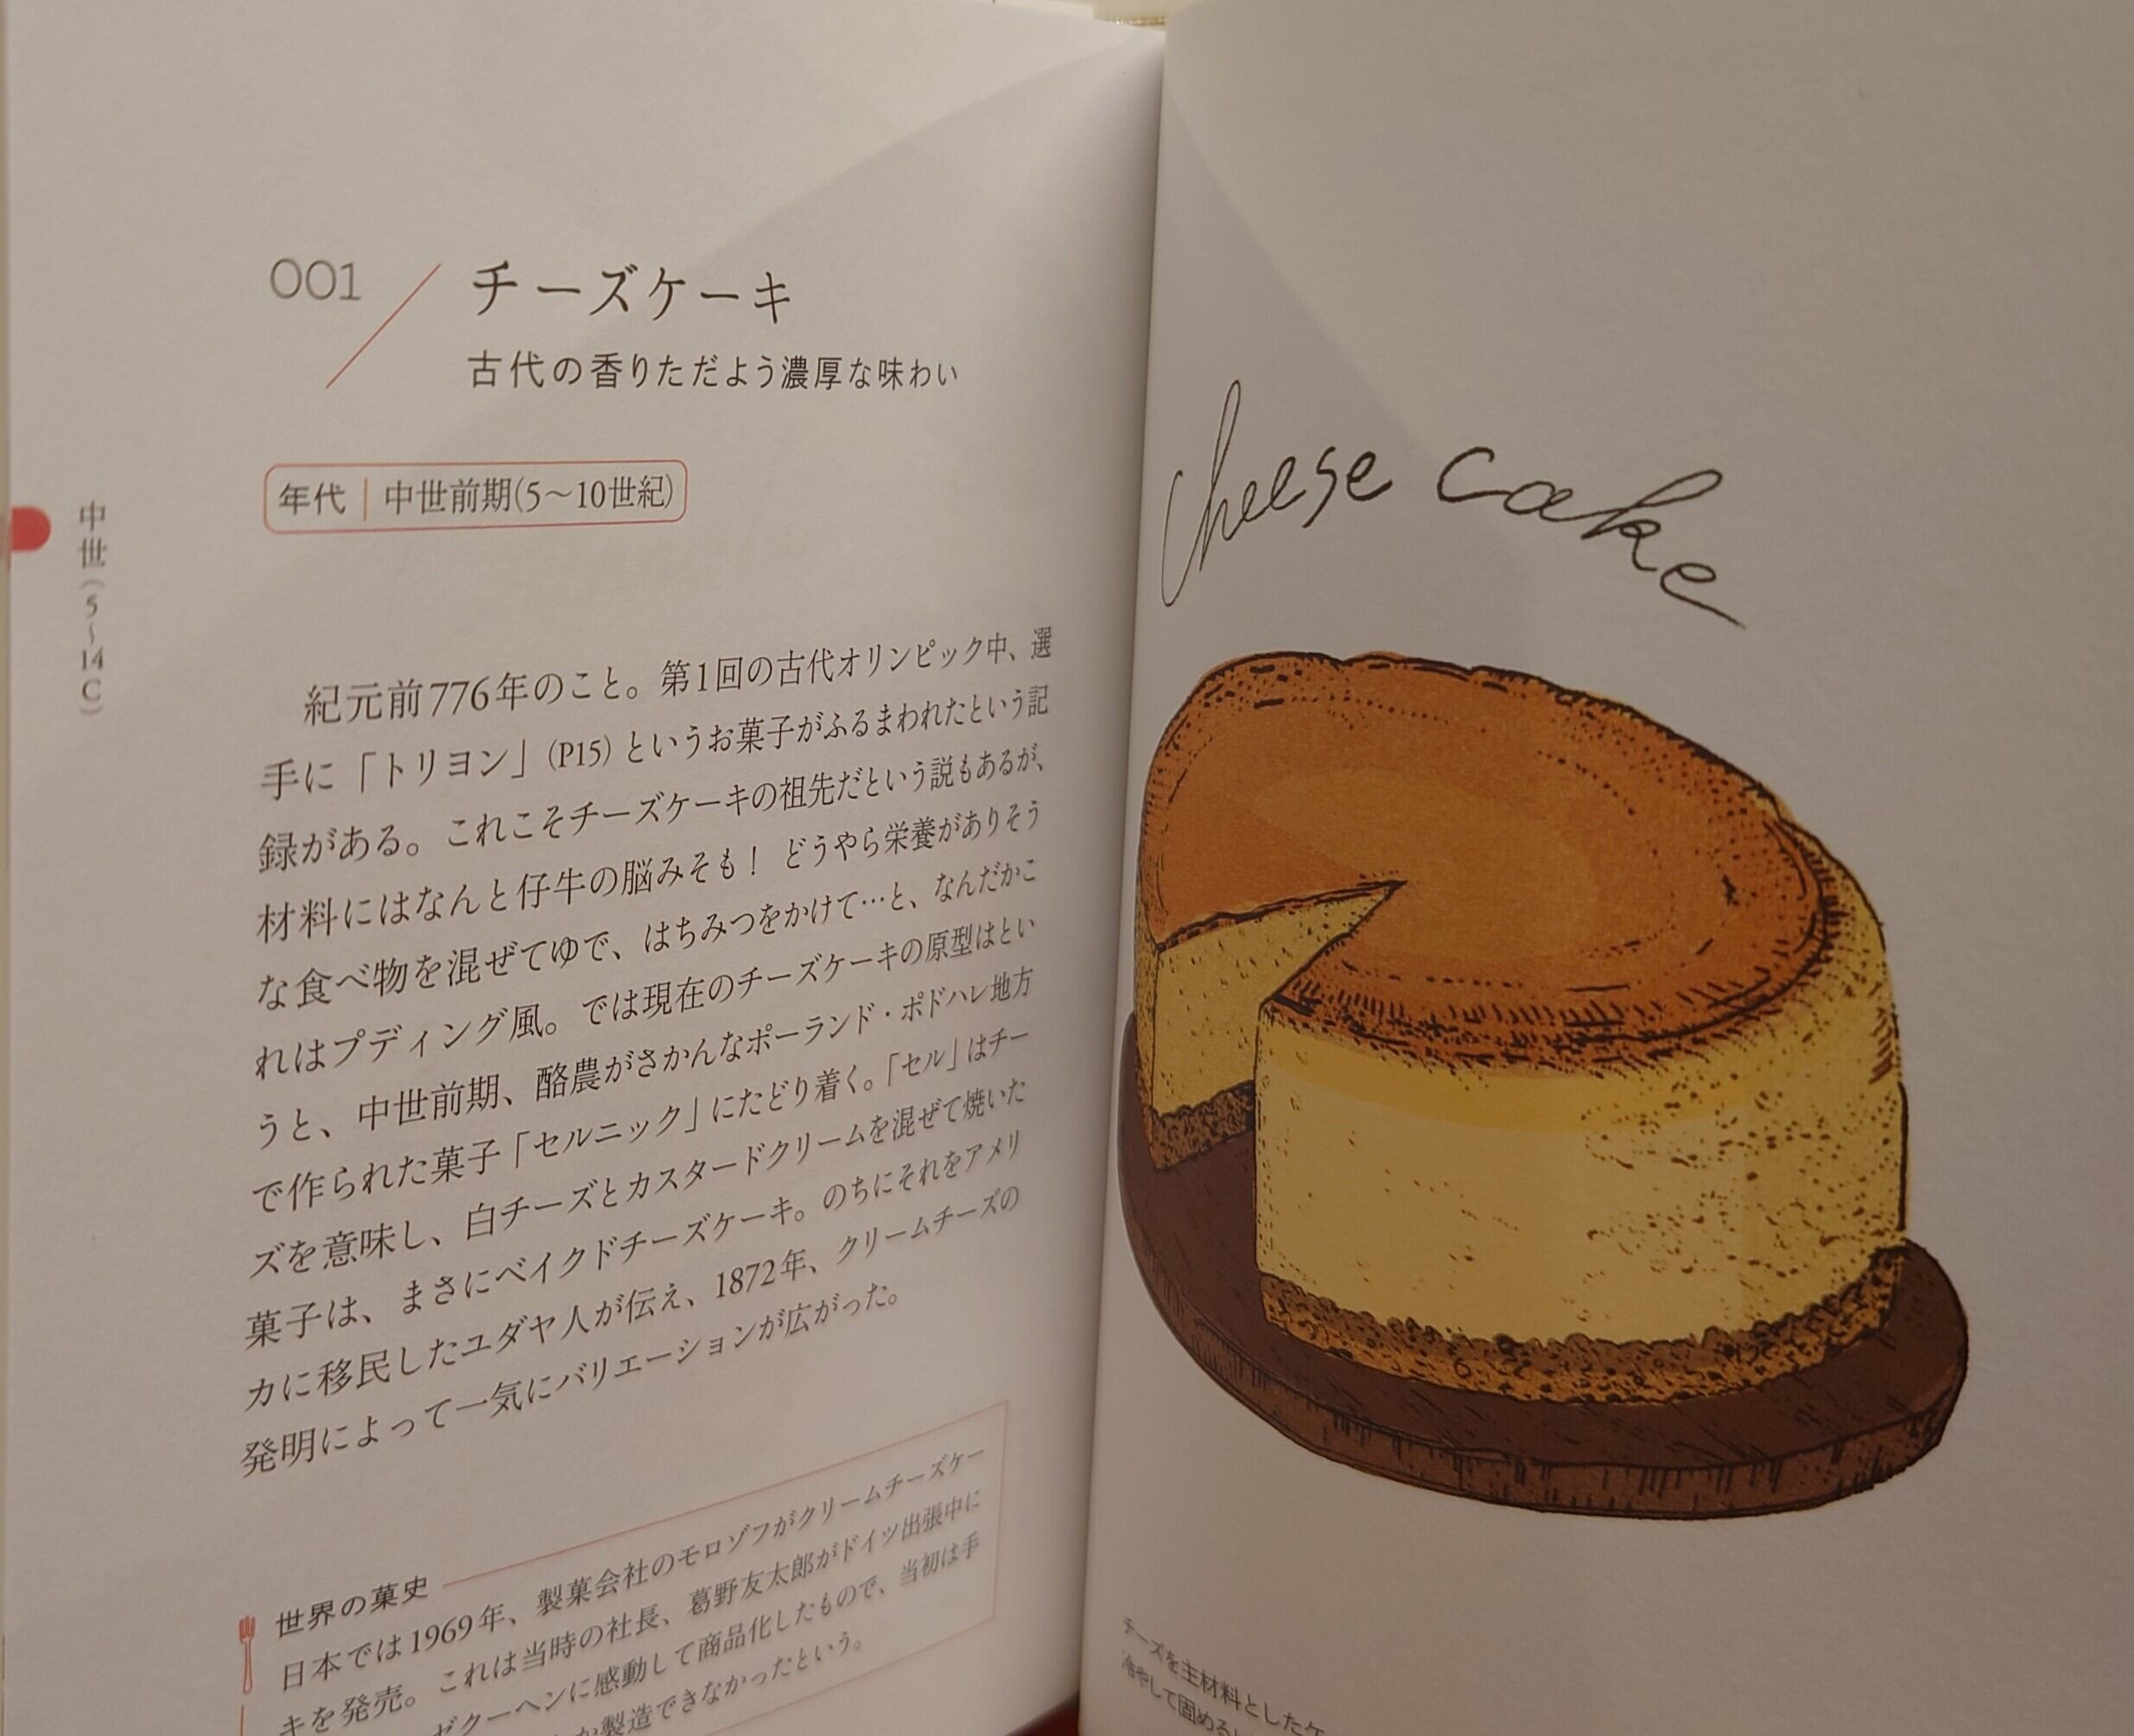 中世(5〜14C)
001
チーズケーキ
古代の香りただよう濃厚な味わい
年代 | 中世前期(5〜10世紀)
紀元前776年のこと。第1回の古代オリンピック中、選
手に「トリヨン」(P15)というお菓子がふるまわれたという記
録がある。これこそチーズケーキの祖先だという説もあるが、
材料にはなんと仔牛の脳みそも! どうやら栄養がありそう
な食べ物を混ぜてゆで、はちみつをかけて…と、なんだかこ
れはプディング風。では現在のチーズケーキの原型はとい
うと、中世前期、酪農がさかんなポーランド・ポドハレ地方
で作られた菓子「セルニック」にたどり着く。「セル」はチー
ズを意味し、白チーズとカスタードクリームを混ぜて焼いた
菓子は、まさにベイクドチーズケーキ。のちにそれをアメリ
カに移民したユダヤ人が伝え、1872年、クリームチーズの
発明によって一気にバリエーションが広がった。
世界の菓史
日本では1969年、製菓会社のモロゾフがクリームチーズケー
キを発売。これは当時の社長、葛野友太郎がドイツ出張中に
ゼクーヘンに感動して商品化したもので、当初は手
か製造できなかったという。
cheese cake
チーズを主材料としたケ
冷やして固める